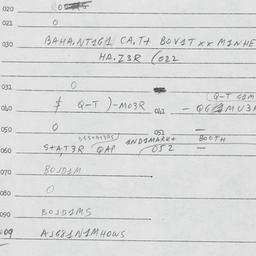 020 0
021 0
030 BAHA.NT1G1 CA.T+ BOV1T xx M1NHE
HA.Z3R (022
031 0
Q-T G1M
040 $ Q-T )-MO3R 041 - QG1MU3A
050 0 051 —
060 S+A,T3R QAP 1ND1MARK+ 052 BOOTH —
070 BOJD1M
080 0
090 BOJD1MS
099 AJG81N1MHOWS